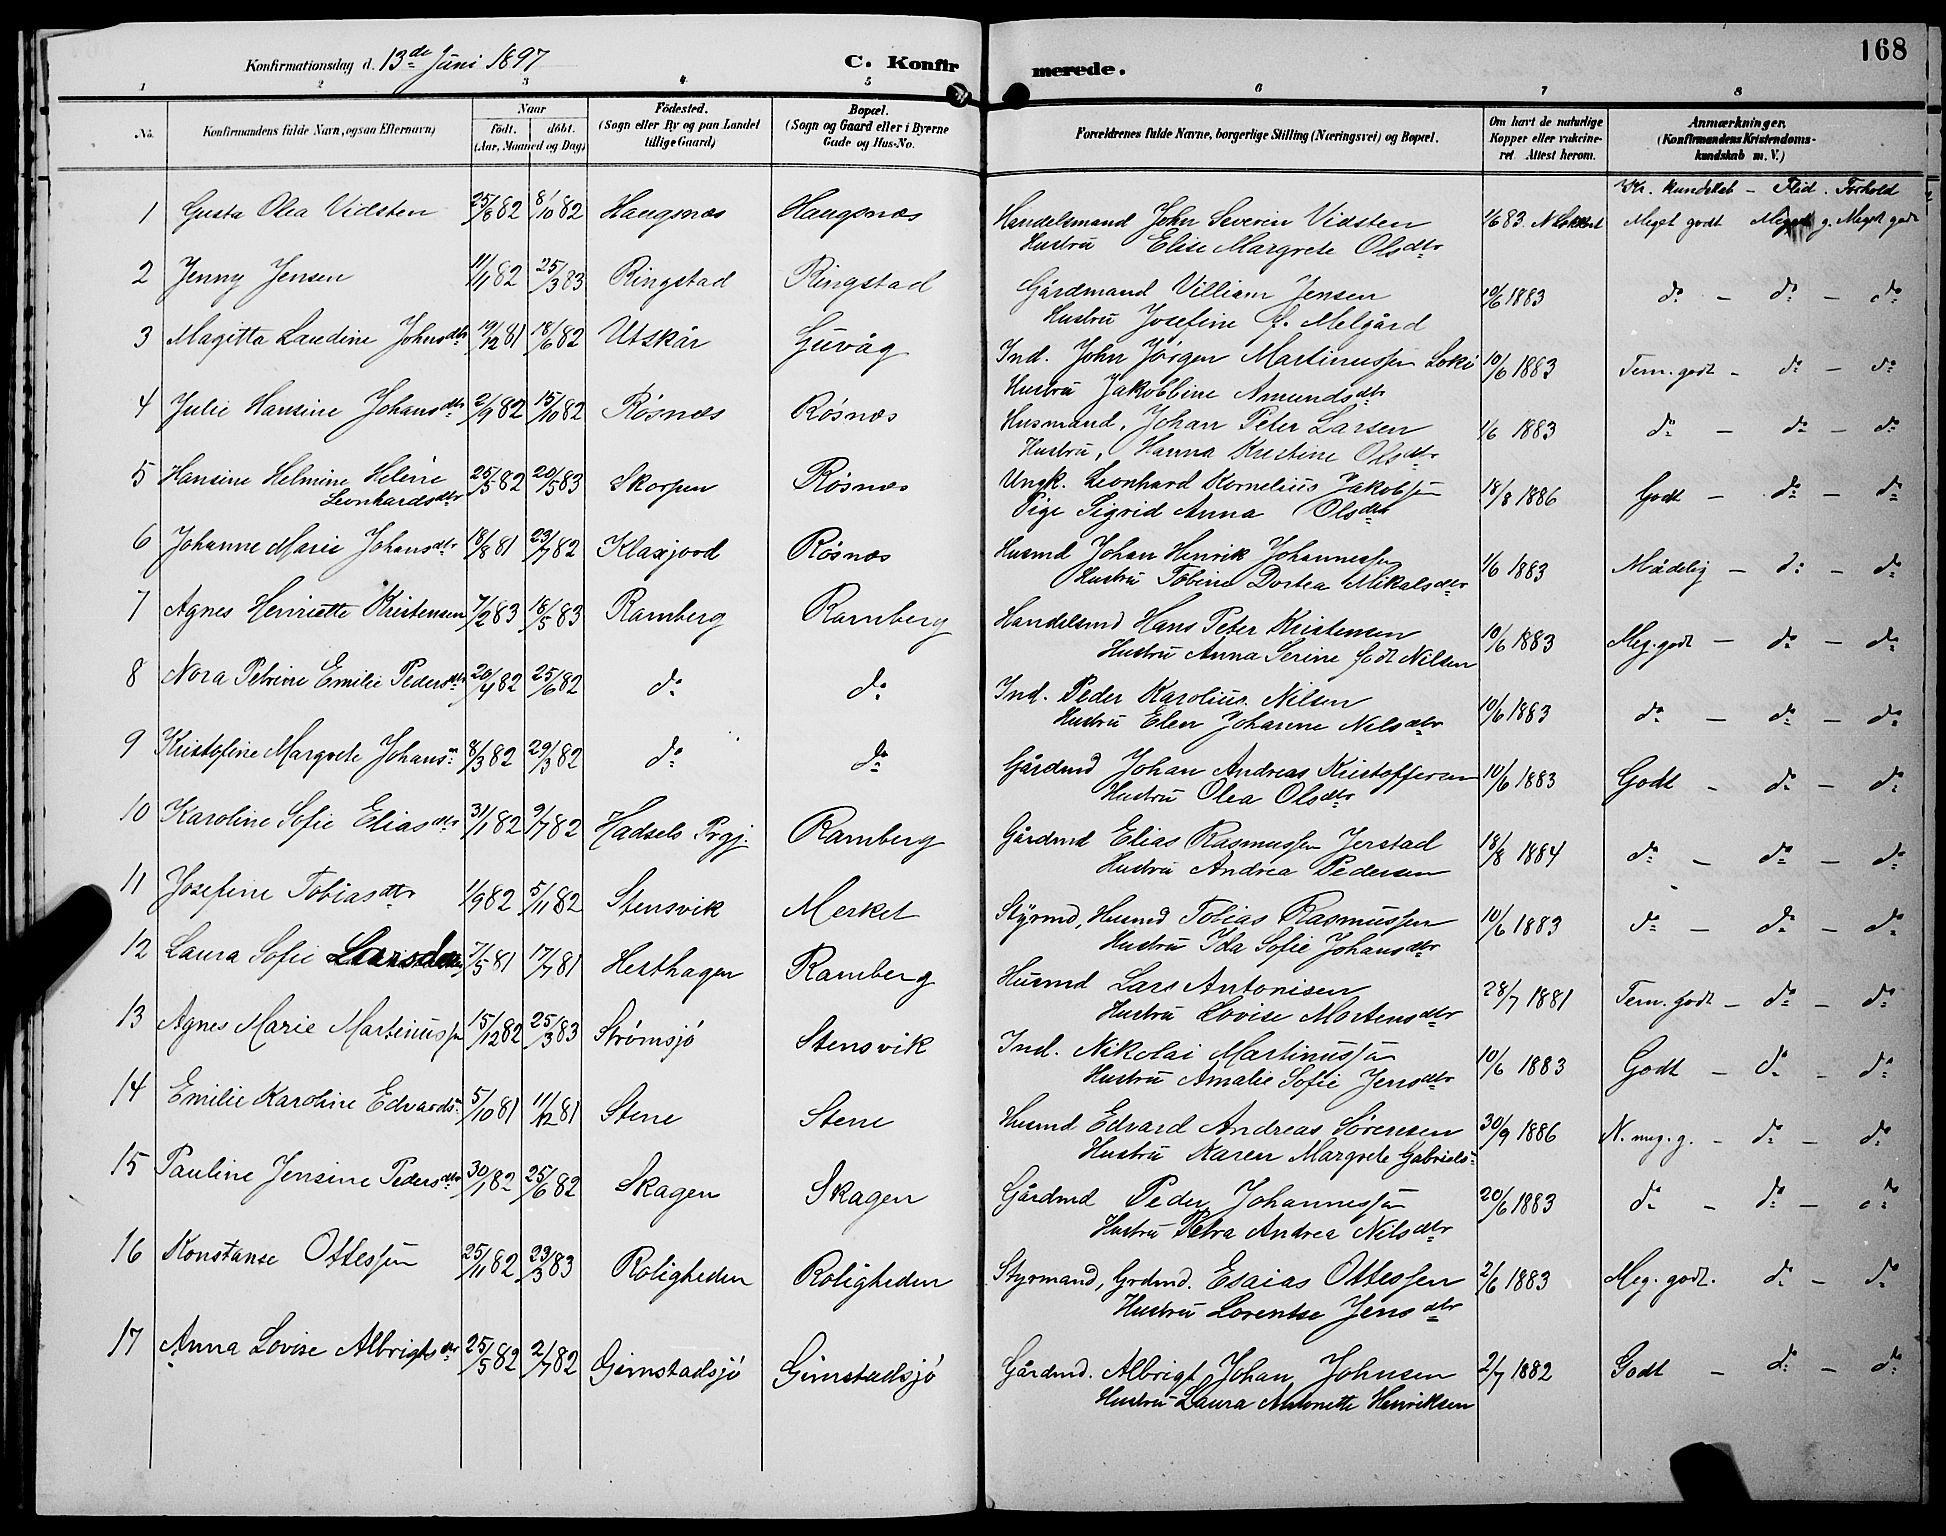 168
Konfirmationsdag d. 13de Juni 1897
C. Konfirmerede.
1 2 3 4 5 6 7 8
No.
Konfirmandens fulde Navn, ogsaa Efternavn)
Naar
födt. döbt.
(Aar, Maaned og Dag)
Födested.
(Sogn eller By og paa Landet
tillige Gaard)
Bopæl.
(Sogn og Gaard eller i Byerne
Gade og Hus-No.
Forældrenes fulde Navne, borgerlige Stilling (Næringsvei) og Bopæl.
Om havt de naturlige
Kopper eller vakcine-
ret Attest herom.
Anmærkninger,
(Konfirmandens Kristendoms-
kundskab m. V.)
Kr. kundskab – Flid. Forhold
1 Gusta Olea Vidsten 25/6 82 8/10 82 Haugsnæs Haugsnæs Handelsmand John Severin Vidsten 1/6 83 Meget godt Meget g. Meget godt
Hustru Elise Margrete Olsdtr
2 Jenny Jensen 11/11 82 25/3 83 Ringstad Ringstad Gårdmand Villiam Jensen 10/6 1883 do – do – do
Hustru Josefine f. Melgård
3 Magitta Laudine Johnsdtr 19/12 81 18/6 82 Utskår Guvåg Ind. John Jörgen Martinussen Loki 10/6 1883 Tem. godt – do – do
Hustru Jakobbine Amundsdtr
4 Julie Hansine Johansdtr 2/9 82 15/10 82 Rösnæs Rösnæs Husmand, Johan Peter Larsen 1/6 1883 do – do – do
Hustru, Hanna Kristine Olsdtr
5 Hansine Helmine Helene 25/5 82 20/5 83 Skorpen Rösnæs Ungk. Leonhard Kornelius Jakobsen 18/8 1886 Godt – do – do
Leonhardsdtr Pige Sigrid Anna Olsdtr
6 Johanne Marie Johansdtr 18/8 81 23/7 82 Klaxjord Rösnæs Husmd Johan Henrik Johannessen 1/6 1883 Mådelig – do – do
Hustru Tobine Dortea Mikalsdtr
7 Agnes Henriette Kristensen 7/2 83 16/5 83 Ramberg Ramberg Handelsmd Hans Peter Kristensen 10/6 1883 Meg. godt – do – do
Hustru Anna Serine födt Nilsen
8 Nora Petrine Emilie Pedersdtr 20/4 82 25/6 82 do do Ind. Peder Karolius Nilsen 10/6 1883 do – do – do
Hustru Elen Johanne Nilsdtr
9 Kristofine Margrete Johans 8/3 82 29/3 82 do do Gårdmd Johan Andreas Kristoffersen 10/6 1883 Godt – do – do
Hustru Olea Olsdtr
10 Karoline Sofie Eliasdtr 31/1 82 9/7 82 Hadsels Prgj. Ramberg Gårdmd Elias Rasmussen Jerstad 18/8 1884 do – do – do
Hustru Andrea Pedersen
11 Josefine Tobiasdtr 1/9 82 5/11 82 Stensvik Merket Styrmd, Husmd Tobias Rasmussen 10/6 1883 do – do – do
Hustru Ida Sofie Johansdtr
12 Laura Sofie Larsdtr 7/5 81 17/7 81 Hesthagen Ramberg Husmd Lars Antonisen 28/7 1881 Tem. godt – do – do
Hustru Lovise Mortensdtr
13 Agnes Marie Martinussen 15/12 82 25/3 83 Strømsjö Stensvik Ind. Nikolai Martinussen 10/6 1883 Godt – do – do
Hustru Amalie Sofie Jensdtr
14 Emilie Karoline Edvards 5/10 81 11/12 81 Stene Stene Husmd Edvard Andreas Sörensen 30/9 1886 N. meg. g. – do – do
Hustru Karen Margrete Gabriels
15 Pauline Jensine Pedersdtr 30/1 82 25/6 82 Skagen Skagen Gårdmd Peder Johannessen 20/6 1883 do – do – do
Hustru Petra Andrea Nilsdtr
16 Konstanse Ottessen 25/11 82 23/3 83 Roligheden Roligheden Styrmand, Grdmd. Esaias Ottessen 2/6 1883 Meg. godt. do – do
Hustru Lorentse Jensdtr
17 Anna Lovise Albrigtsdtr 25/5 82 2/7 82 Gimstadsjö Gimstadsjö Gårdmd. Albrigt Johan Johnsen 2/7 1882 Godt – do – do
Hustru Laura Antonette Henriksen